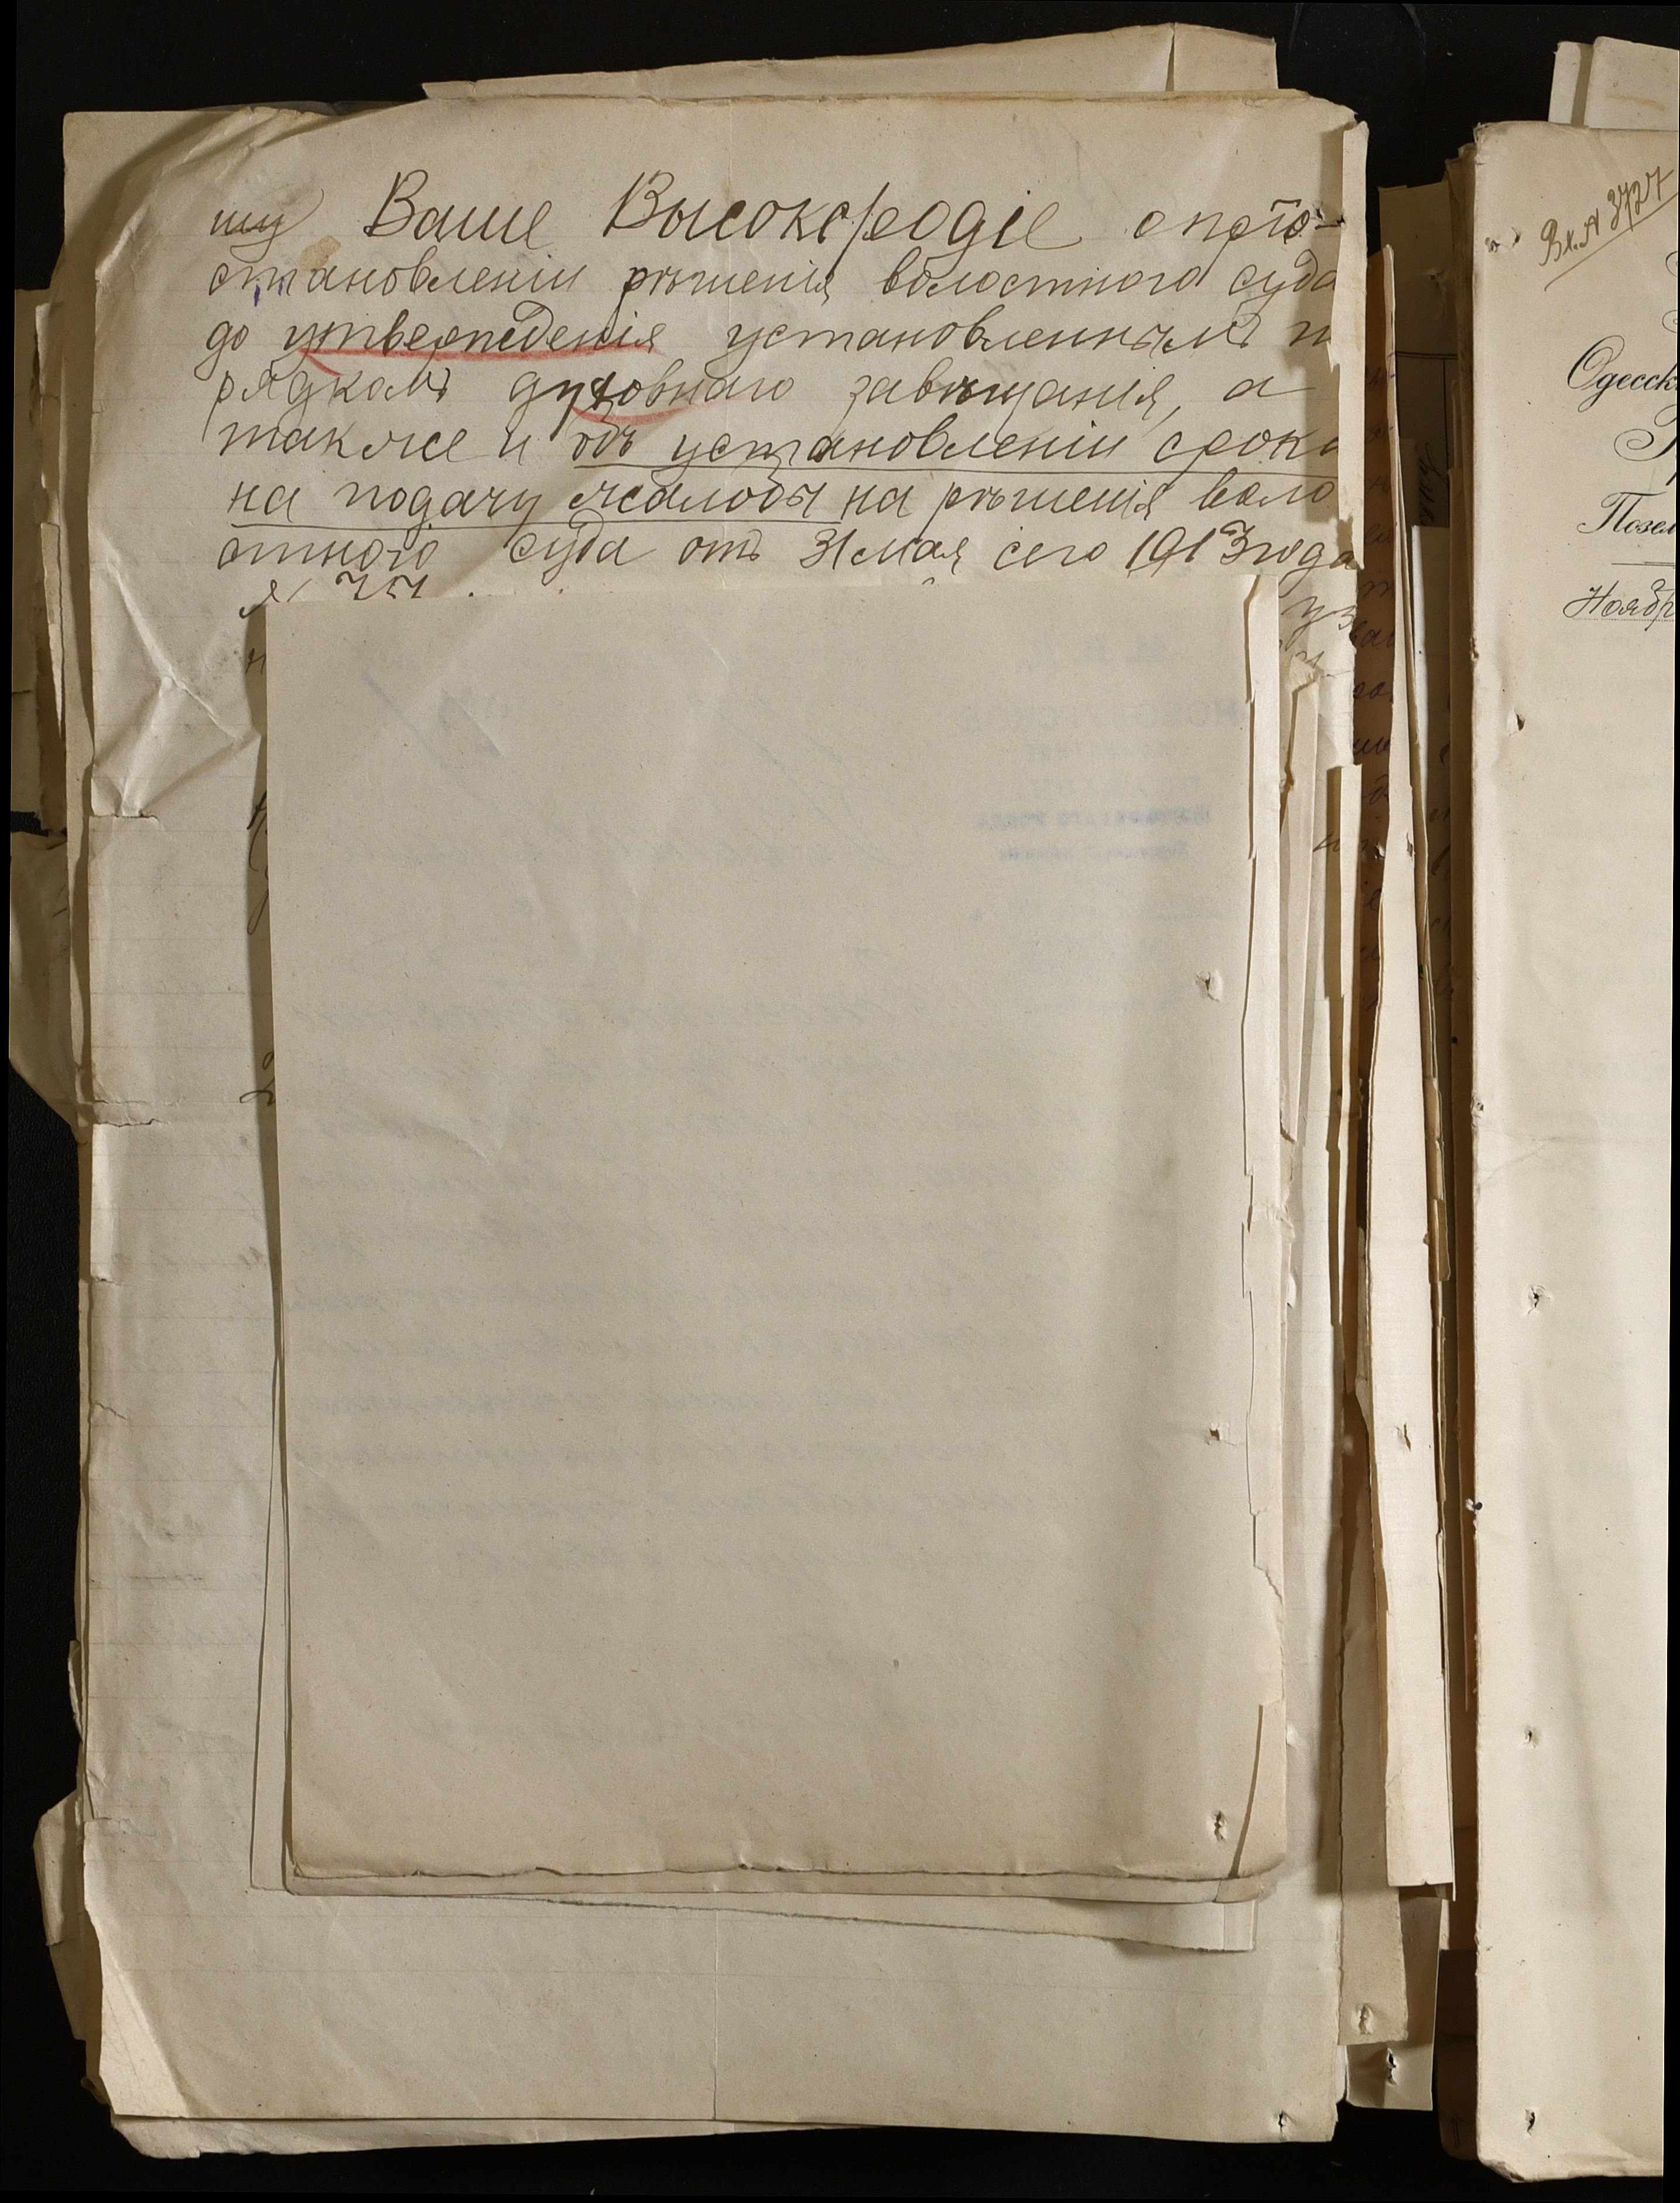 шу Ваше Высокородіе о прiо-
становленіи рѣшенія волостного суда
до утвержденія установленнымъ п
рядкомъ духовнаго завѣщанія, а
также и объ установленіи срока
на подачу жалобы на рѣшенія воло
стного суда отъ 31 мая сего 1913 года
Вх. № 3727
Одесск
Позем
Ноябр